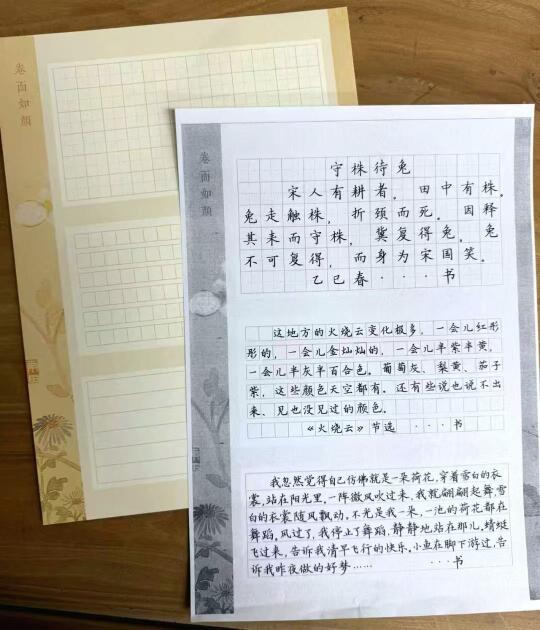 卷面如颜
卷面如颜
守株待兔
宋人有耕者。田中有株。
兔走触株，折颈而死。因释
其耒而守株，冀复得兔。兔
不可复得，而身为宋国笑。
乙巳春···书
这地方的火烧云变化极多，一会儿红彤
彤的，一会儿金灿灿的，一会儿半紫半黄，
一会儿半灰半百合色。葡萄灰、梨黄、茄子
紫，这些颜色天空都有。还有些说也说不出
来、见也没见过的颜色。
《火烧云》节选 ···书
我忽然觉得自己仿佛就是一朵荷花，穿着雪白的衣
裳，站在阳光里。一阵微风吹过来，我就翩翩起舞，雪
白的衣裳随风飘动。不光是我一朵，一池的荷花都在
舞蹈。风过了，我停止了舞蹈，静静地站在那儿。蜻蜓
飞过来，告诉我清早飞行的快乐。小鱼在脚下游过，告
诉我昨夜做的好梦…… ···书